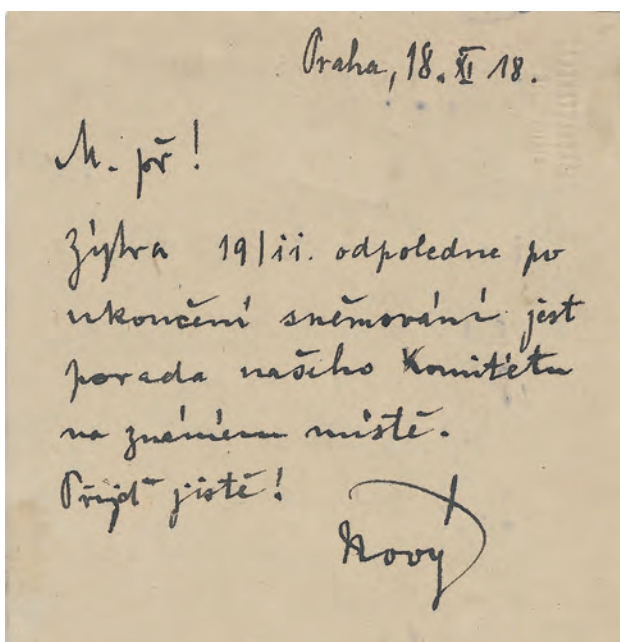 Praha, 18. XI 18.
M. př!
Zýtra 19/ii. odpoledne po
ukončení sněmování jest
porada našeho Komitétu
na známém místě.
Přijď jistě!
Nový